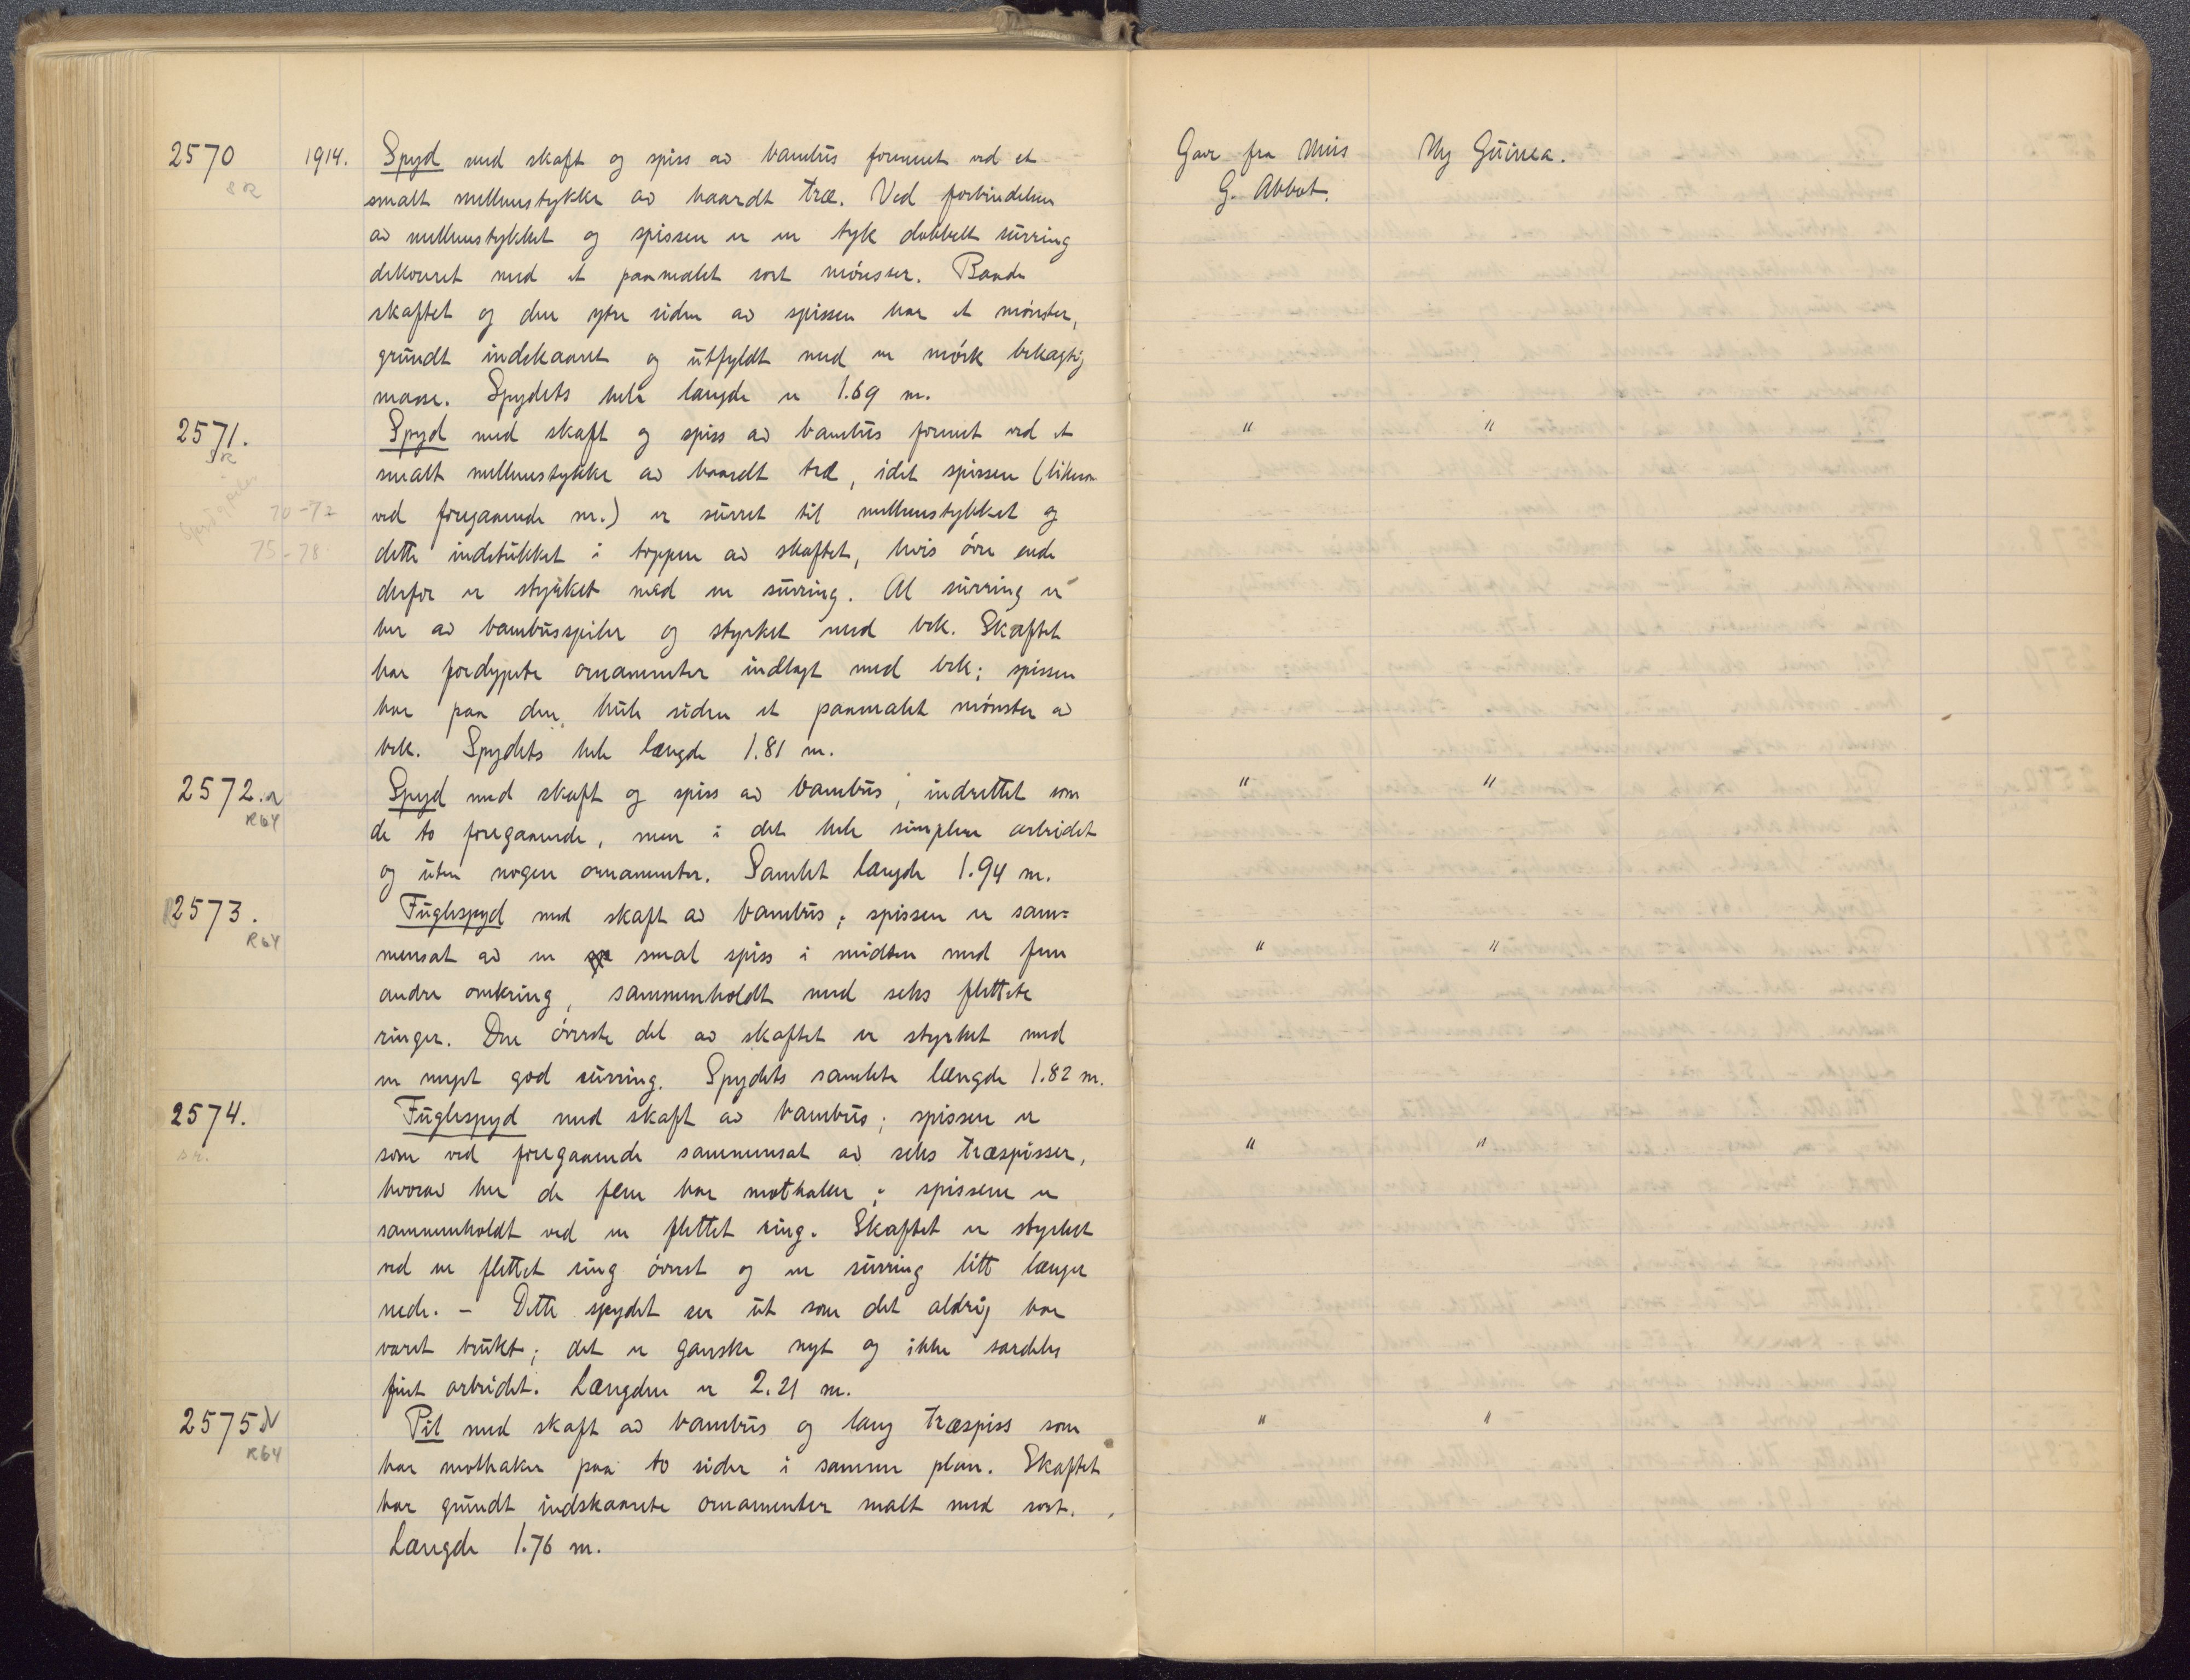 2570 1914. Spyd med skaft og spiss av bambus formet ved et Gave fra Miss Ny Guinea.
SR smalt mellemstykke av haardt træ. Ved forbindelsen G. Abbot.
av mellemstykket og spissen er en tyk dobbelt surring
dekorert med et paamalet sort mønster. Baade
skaftet og den ytre siden av spissen har et mønster,
grundt indskaaret og utfyldt med en mørk bekagtig
masse. Spydets hele længde er 1.69 m.
2571. Spyd med skaft og spiss av bambus formet ved et " "
SR smalt mellemstykke av haardt træ, idet spissen (likesom
70-72 ved foregaaende nr.) er surret til mellemstykket og
75-78 dette indstukket i toppen av skaftet, hvis øvre ende
derfor er styrket med en surring. Al surring er
her av bambusspiler og styrket med bek. Skaftet
har fordypete ornamenter indlagt med bek; spissen
har paa den hule siden et paamalet mønster av
bek. Spydets hele længde 1.81 m.
2572. Spyd med skaft og spiss av bambus, indrettet som " "
R64 de to foregaaende, men i det hele simplere arbeidet
og uten nogen ornamenter. Samlet længde 1.94 m.
2573. Fuglespyd med skaft av bambus; spissen er sam=
R64 mensat av en smal spiss i midten med fem " "
andre omkring, sammenholdt med seks flettete
ringer. Den øverste del av skaftet er styrket med
en meget god surring. Spydets samlete længde 1.82 m.
2574. Fuglespyd med skaft av bambus; spissen er
SR. som ved foregaaende sammensat av seks træspisser, " "
hvorav her de fem har mothaker; spissene er
sammenholdt ved en flettet ring. Skaftet er styrket
ved en flettet ring øverst og en surring litt længer
nede. - Dette spydet ser ut som det aldrig har
været brukt; det er ganske nyt og ikke særdeles
fint arbeidet. Længden er 2.21 m.
2575 N Pil med skaft av bambus og lang træspiss som " "
R64 har mothaker paa to sider i samme plan. Skaftet
har grundt indskaarete ornamenter malt med sort.
Længde 1.76 m.